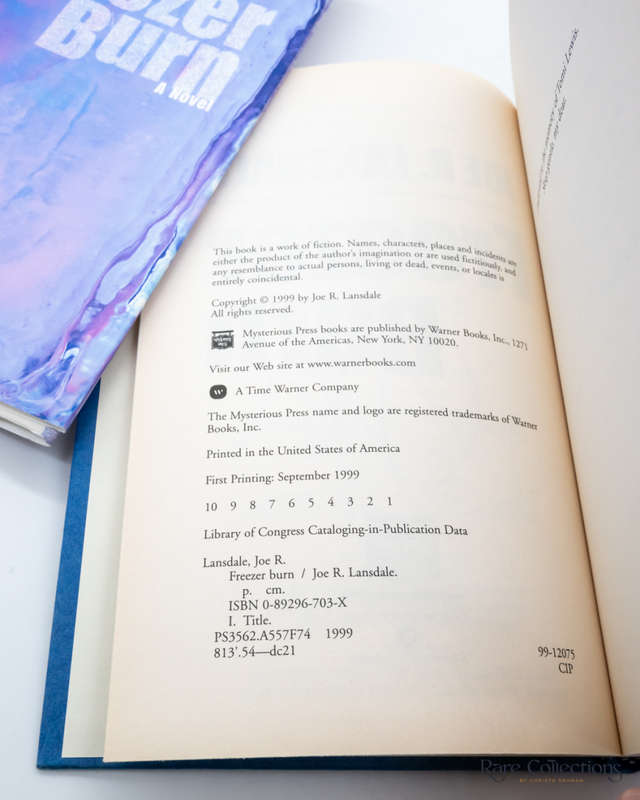 Burn
A Novel
This book is a work of fiction. Names, characters, places and incidents are
either the product of the author's imagination or are used fictitiously, and
any resemblance to actual persons, living or dead, events, or locales is
entirely coincidental.
Copyright © 1999 by Joe R. Lansdale
All rights reserved.
Mysterious Press books are published by Warner Books, Inc., 1271
Avenue of the Americas, New York, NY 10020.
Visit our Web site at www.warnerbooks.com
W A Time Warner Company
The Mysterious Press name and logo are registered trademarks of Warner
Books, Inc.
Printed in the United States of America
First Printing: September 1999
10 9 8 7 6 5 4 3 2 1
Library of Congress Cataloging-in-Publication Data
Lansdale, Joe R.
Freezer burn / Joe R. Lansdale.
p. cm.
ISBN 0-89296-703-X
I. Title.
PS3562.A557F74 1999
813'.54—dc21
99-12075
CIP
memory of Tomi Lewis,
my dear
Rare Collections